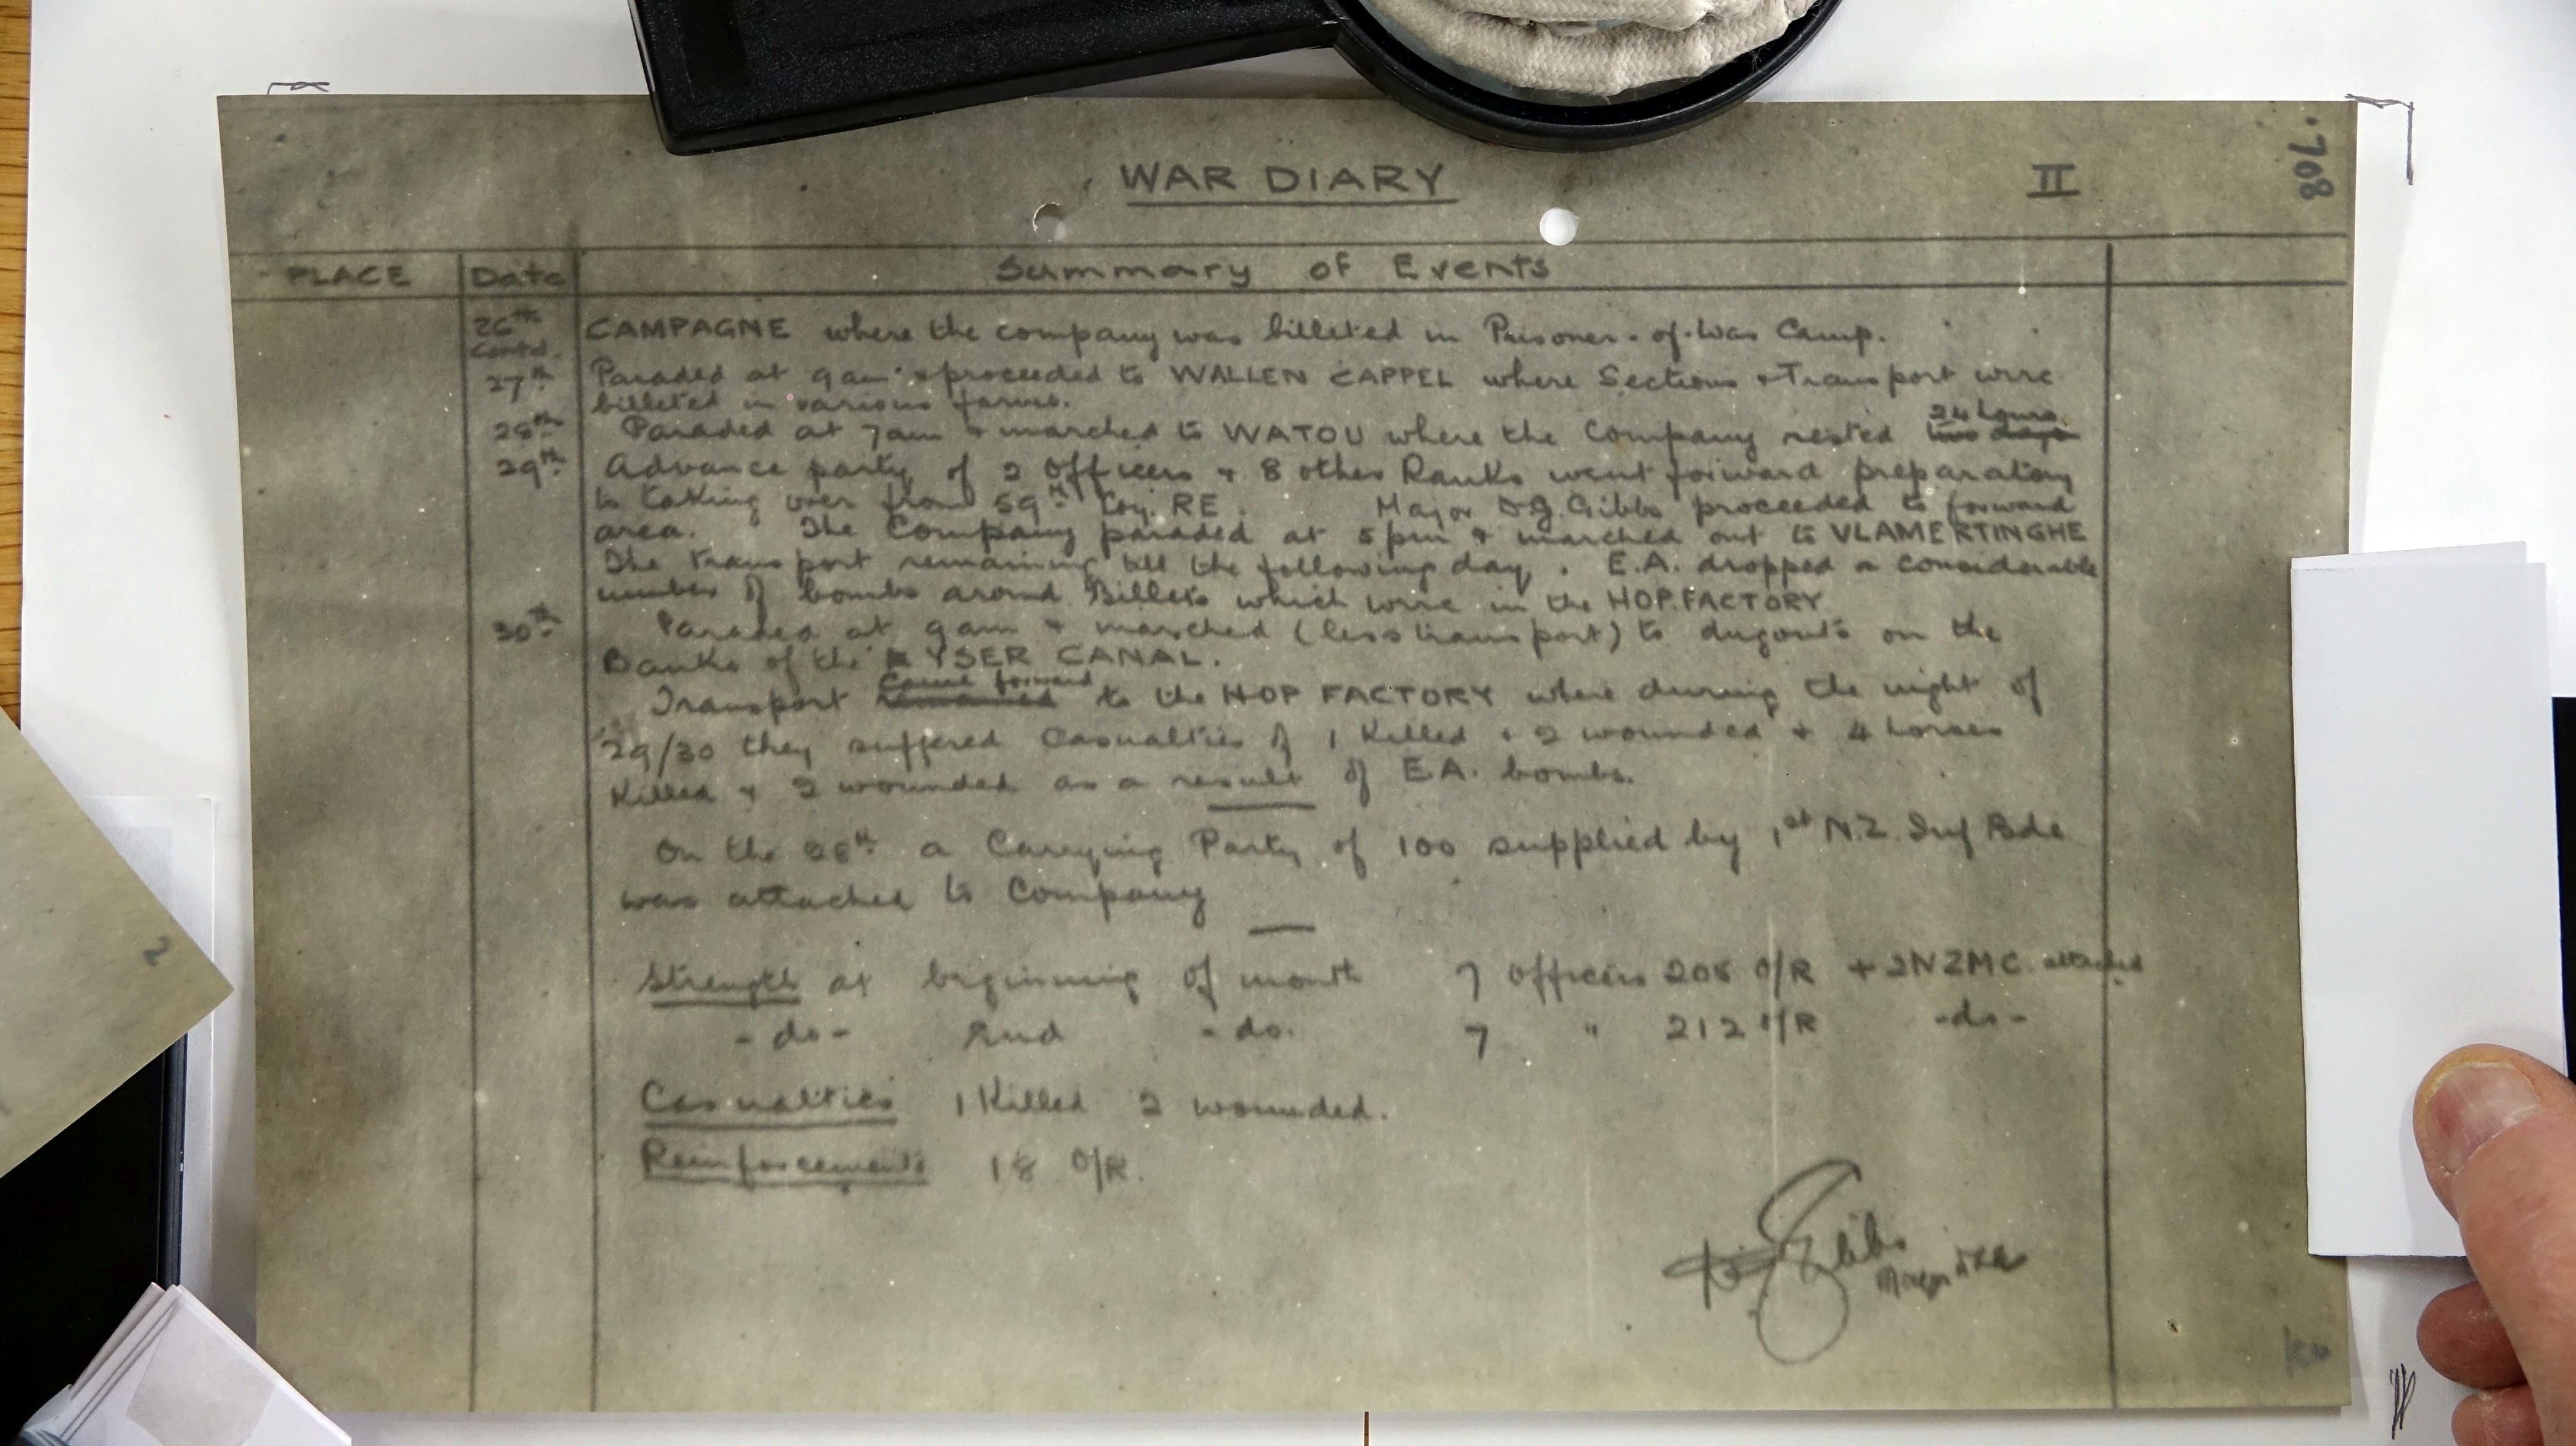 WAR DIARY
II
.708
PLACE
Date
Summary of Events
26th contd. CAMPAGNE where the company was billeted in Prisoner-of-War Camp.
27th Paraded at 9am & proceeded to WALLEN CAPPEL where Sections & Transport were
billeted in various farms.
24 hours
28th Paraded at 7am & marched to WATOU where the Company rested two days
29th Advance party of 2 Officers & 8 other Ranks went forward preparatory
to taking over from 59th Coy. RE. Major D.J. Gibbs proceeded to forward
area. The Company paraded at 5pm & marched out to VLAMERTINGHE
The transport remaining till the following day. E.A. dropped a considerable
number of bombs around Billets which were in the HOP.FACTORY
30th Paraded at 9am & marched (less transport) to dugouts on the
Banks of the YSER CANAL.
came forward
Transport remained to the HOP FACTORY where during the night of
29/30 they suffered Casualties of 1 Killed & 2 wounded & 4 horses
Killed & 2 wounded as a result of E.A. bombs.
On the 28th a Carrying Party of 100 supplied by 1st N.Z. Inf Bde
was attached to Company
Strength at beginning of month 7 Officers 208 O/R + 2NZMC. attached
- do - End - do. 7 " 212 O/R -do-
Casualties 1 Killed 2 wounded.
Reinforcements 18 O/R.
Gibbs
Major NZE
2